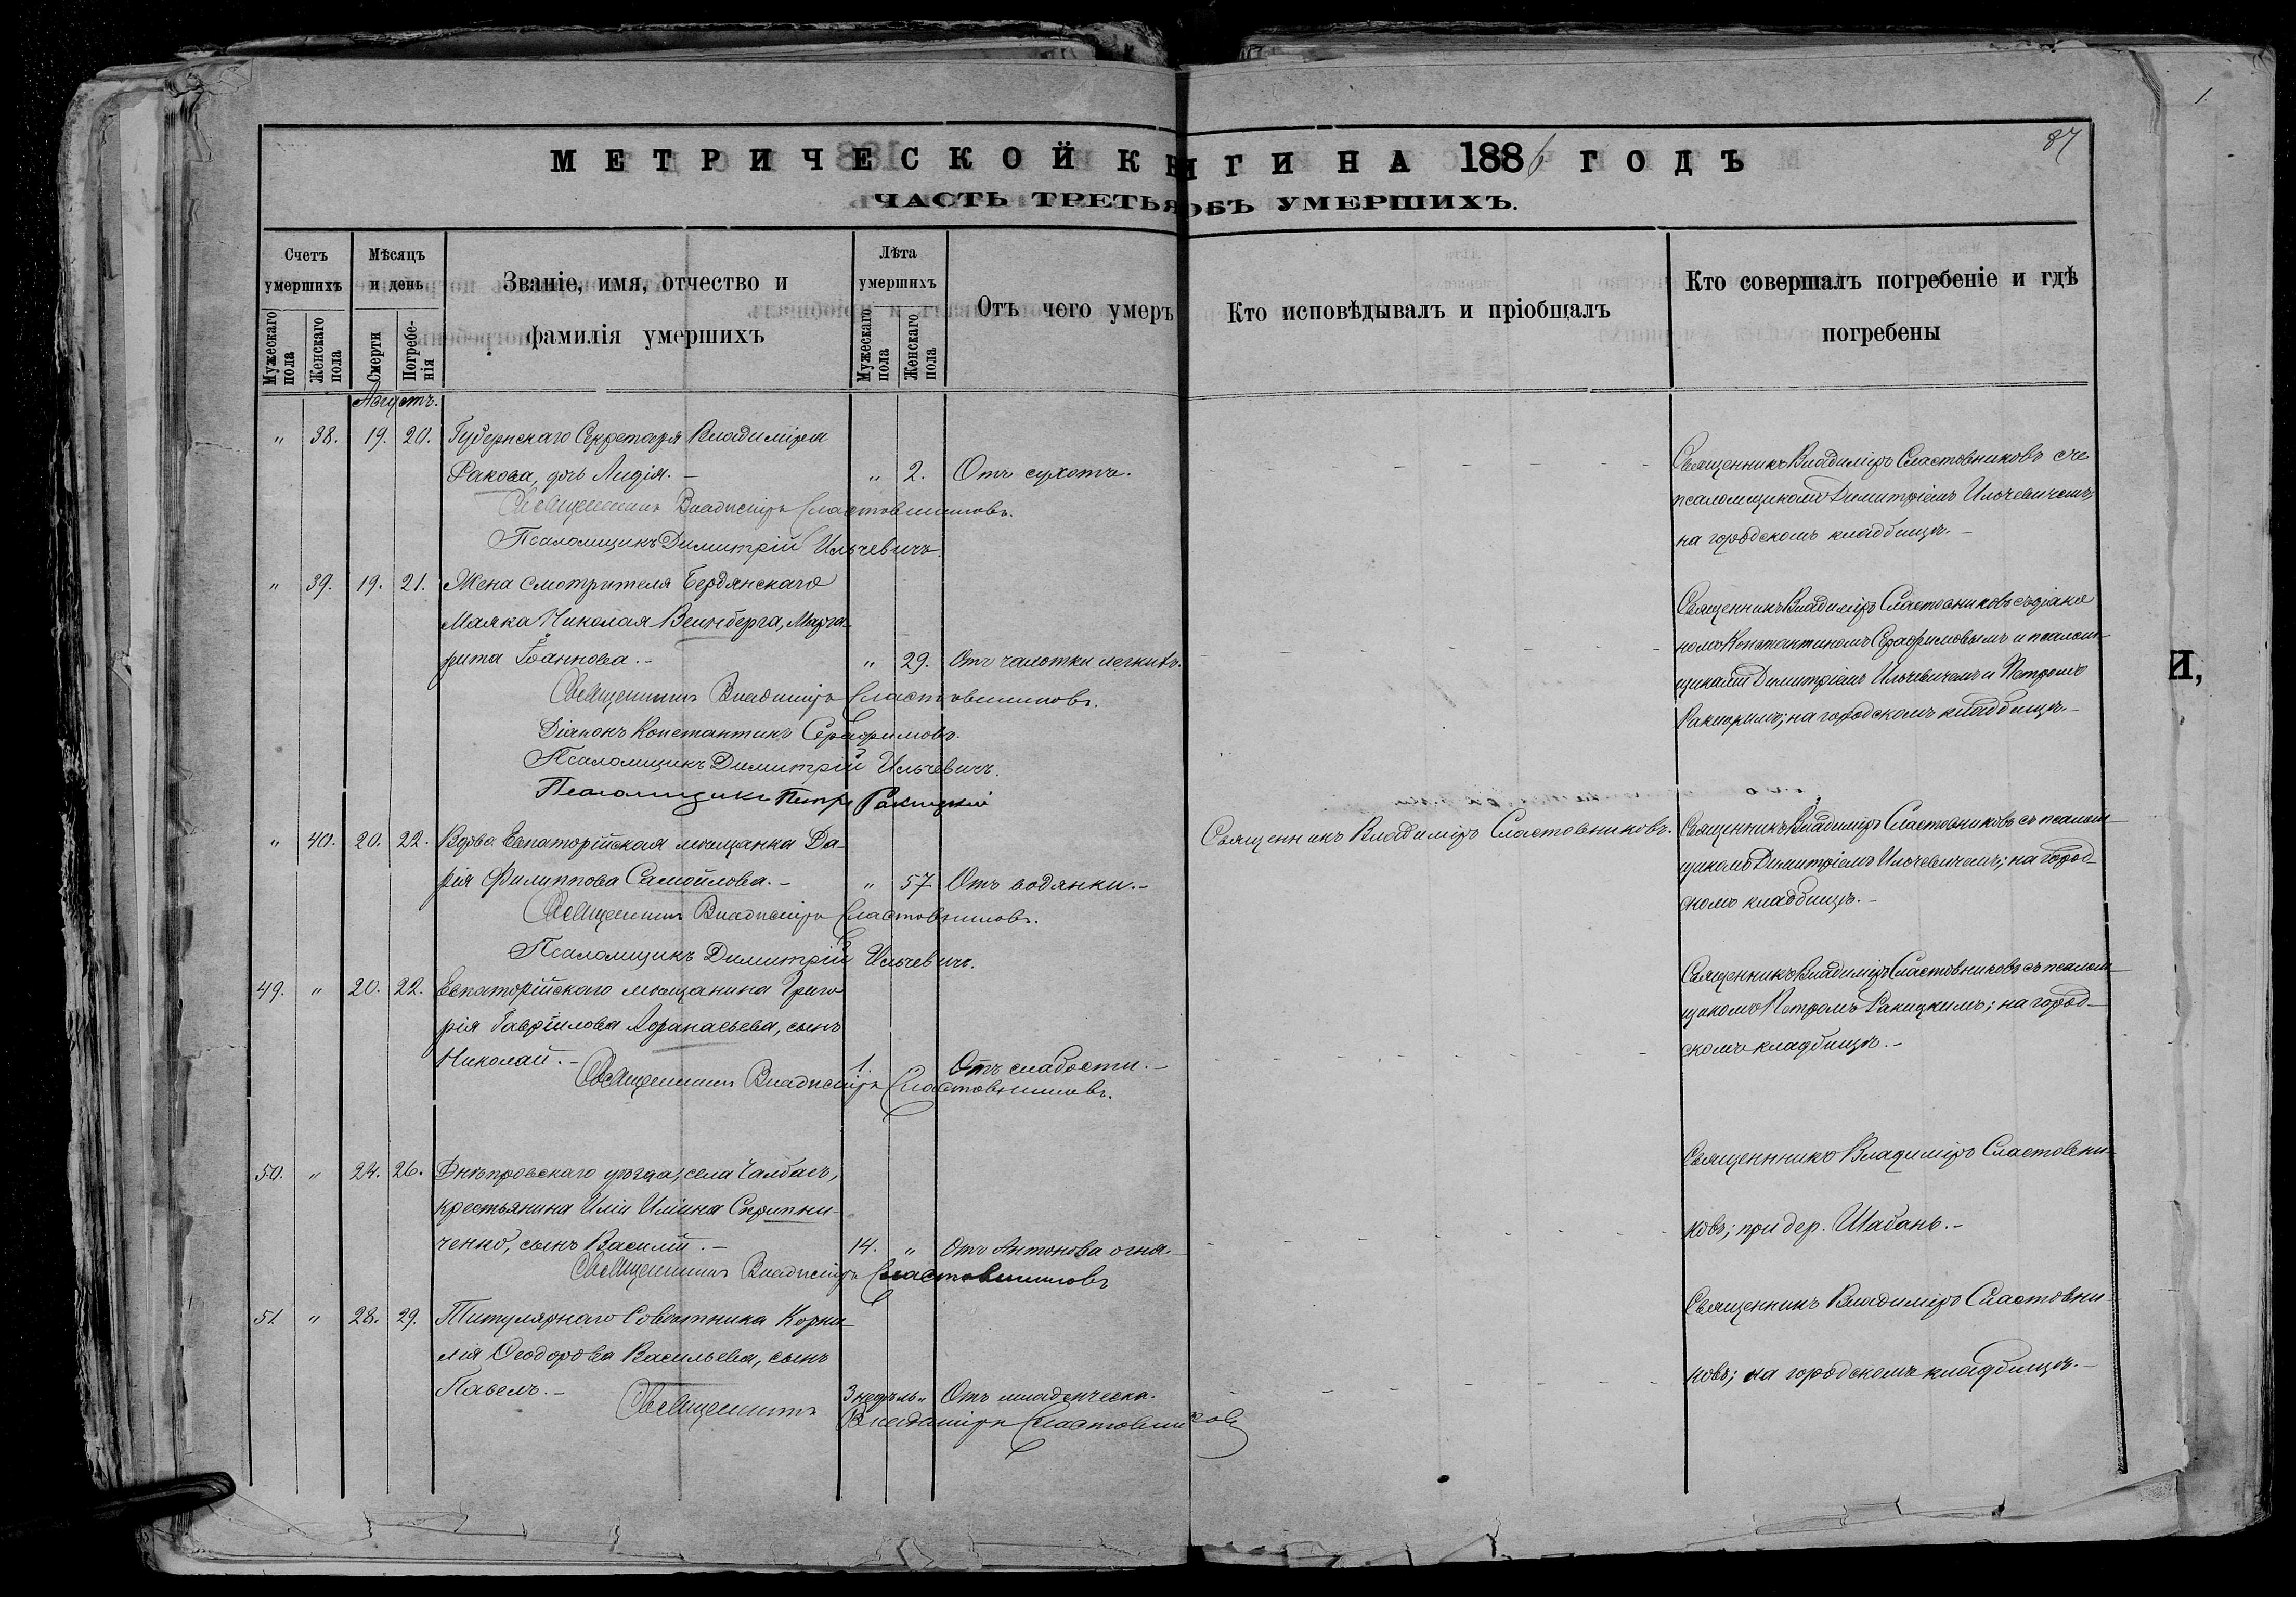 1.
87
МЕТРИЧЕСКОЙ КНИГИ НА 1886 ГОДЪ
ЧАСТЬ ТРЕТЬЯ ОБЪ УМЕРШИХЪ.
Счетъ умершихъ
Мужескаго пола
Женскаго пола
Мѣсяцъ и день
Смерти
Погребе-нія
Званіе, имя, отчество и
фамилія умершихъ
Лѣта умершихъ
Мужескаго пола
Женскаго пола
Отъ чего умеръ
Кто исповѣдывалъ и пріобщалъ
Кто совершалъ погребеніе и гдѣ
погребены
Августъ.
„ 38. 19. 20. Губернскаго Секретаря Владиміра
Ракова, дчь Лидія. – „ 2. Отъ сухотъ.
Священникъ Владиміръ Сластовниковъ.
Псаломщикъ Димитрій Ильчевичъ.
Священникъ Владиміръ Сластовниковъ съ
псаломщикомъ Димитріемъ Ильчевичемъ;
на городскомъ кладбищѣ. –
„ 39. 19. 21. Жена смотрителя Бердянскаго
Маяка Николая Вейнберга, Марга-
рита Іоаннова. – „ 29. Отъ чахотки легкихъ.
Священникъ Владиміръ Сластовниковъ.
Діаконъ Константинъ Серафимовъ.
Псаломщикъ Димитрій Ильчевичъ.
Псаломщикъ Петръ Ракицкій
Священникъ Владиміръ Сластовниковъ съ діако
номъ Константиномъ Серафимовымъ и псалом-
щиками Димитріемъ Ильчевичемъ и Петромъ
на городскомъ кладбищѣ. –
„ 40. 20. 22. Вдова Евпаторійская мѣщанка Да-
рія Филиппова Самойлова. – „ 57 Отъ водянки. –
Священникъ Владиміръ Сластовниковъ.
Псаломщикъ Димитрій Ильчевичъ.
Священникъ Владиміръ Сластовниковъ.
Священникъ Владиміръ Сластовниковъ съ псалом-
щикомъ Димитріемъ Ильчевичемъ; на город-
скомъ кладбищѣ. –
49. „ 20. 22. Евпаторійскаго мѣщанина Григо
рія Гаврилова Афанасьева, сынъ
Николай. – 1. Отъ слабости. –
Священникъ Владиміръ Сластовниковъ.
Священникъ Владиміръ Сластовниковъ съ псалом-
щикомъ Петромъ Ракицкимъ; на город-
скомъ кладбищѣ. –
50. „ 24. 26. Днѣпровскаго уѣзда, села Чалбасъ,
крестьянина Иліи Иліина Скрипни-
ченко, сынъ Василій. – 14. „ Отъ Антонова огня. –
Священникъ Владиміръ Сластовниковъ
Священникъ Владиміръ Сластовни-
ковъ; при дер. Шабань. –
51 „ 28. 29. Титулярнаго Совѣтника Корни-
лія Ѳеодорова Васильева, сынъ
Павелъ. – 3 недѣль „ Отъ младенческа.
Священникъ Владиміръ Сластовниковъ
Священникъ Владиміръ Сластовни-
ковъ; на городскомъ кладбищѣ. –
И,